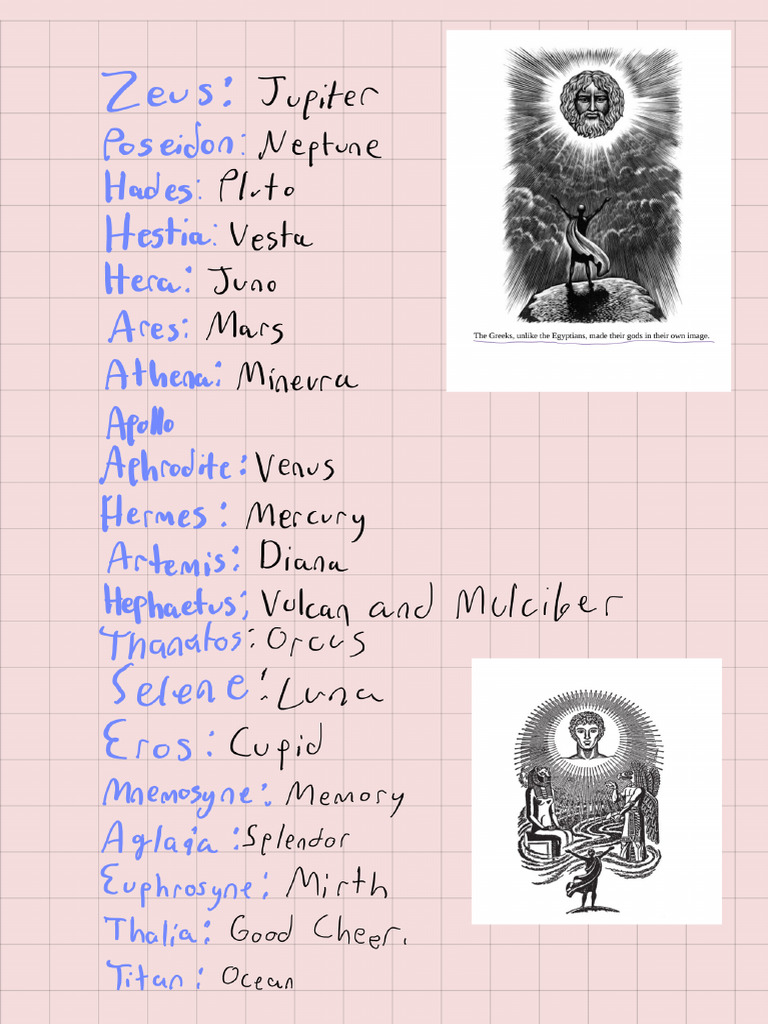 Zeus: Jupiter
Poseidon: Neptune
Hades: Pluto
Hestia: Vesta
Hera: Juno
Ares: Mars
Athena: Minevra
Apollo
Aphrodite: Venus
Hermes: Mercury
Artemis: Diana
Hephaetus; Vulcan and Mulciber
Thanatos: Orcus
Selene: Luna
Eros: Cupid
Mnemosyne: Memory
Aglaia: Splendor
Euphrosyne: Mirth
Thalia: Good Cheer.
Titan: Ocean
The Greeks, unlike the Egyptians, made their gods in their own image.